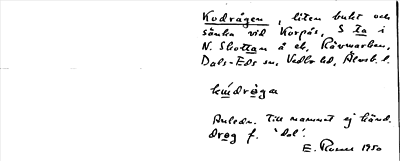 Kudrågen, liten bukt och
sänka vid Korpås, S ta i
N. Slottan å ek,
Dals-Eds sn, Vedbo hd, Älvsb. l.
kúdrògan
Anledn. till namnet ej känd.
drog f. 'dal'.
E. 1950